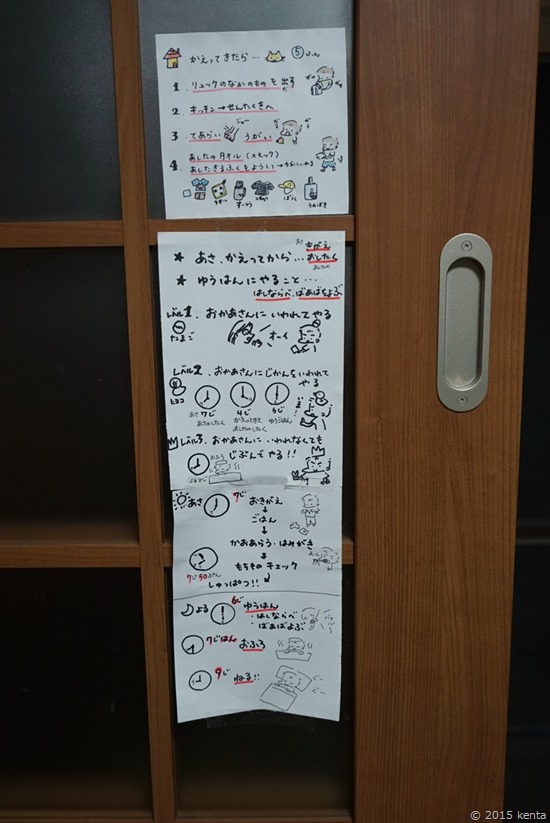 かえってきたら… ⑤
1. リュックのなかのものを出す
2. キッチン→せんたくきへ
3. てあらい うがい
4. あしたの月オル(スモック)
あしたきるふくをようい
★ あさ、かえってから… きがえ おしたく
★ ゆうはんにやること…
はしならべ、ばあばをよぶ
レベル1. おかあさんにいわれてやる
たまご オーイ
レベル2. おかあさんにじかんをいわれて
やる
ヒヨコ
あさ7じ 4じ 6じ
あさのしたく かえってきて、 ゆうごはん
あしたのしたく
レベル3. おかあさんにいわれなくても
じぶんでやる!!
おふろ
あさ 7じ おきがえ
↓
ごはん
↓
かおあらう・はみがき
↓
もちものチェック
7じ50ぷん しゅっぱつ!!
よる 6じ ゆうはん
・はしならべ
・ばあばよぶ
7じはん おふろ
9じ ねる!!
© 2015 kenta